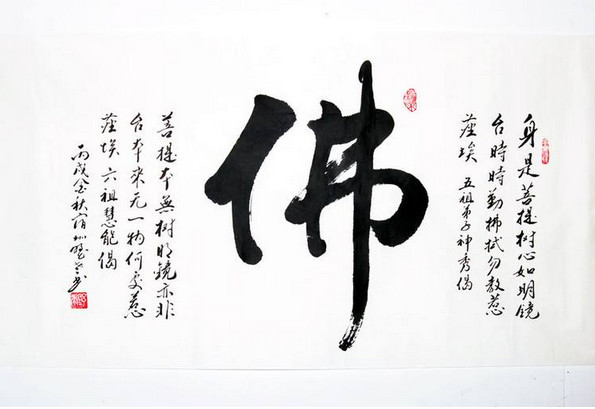 身是菩提树心如明镜
台時時勤拂拭勿教惹
塵埃 五祖弟子神秀偈
佛
菩提本無树明镜亦非
台本來元一物何处惹
塵埃 六祖慧能偈
丙戌金秋